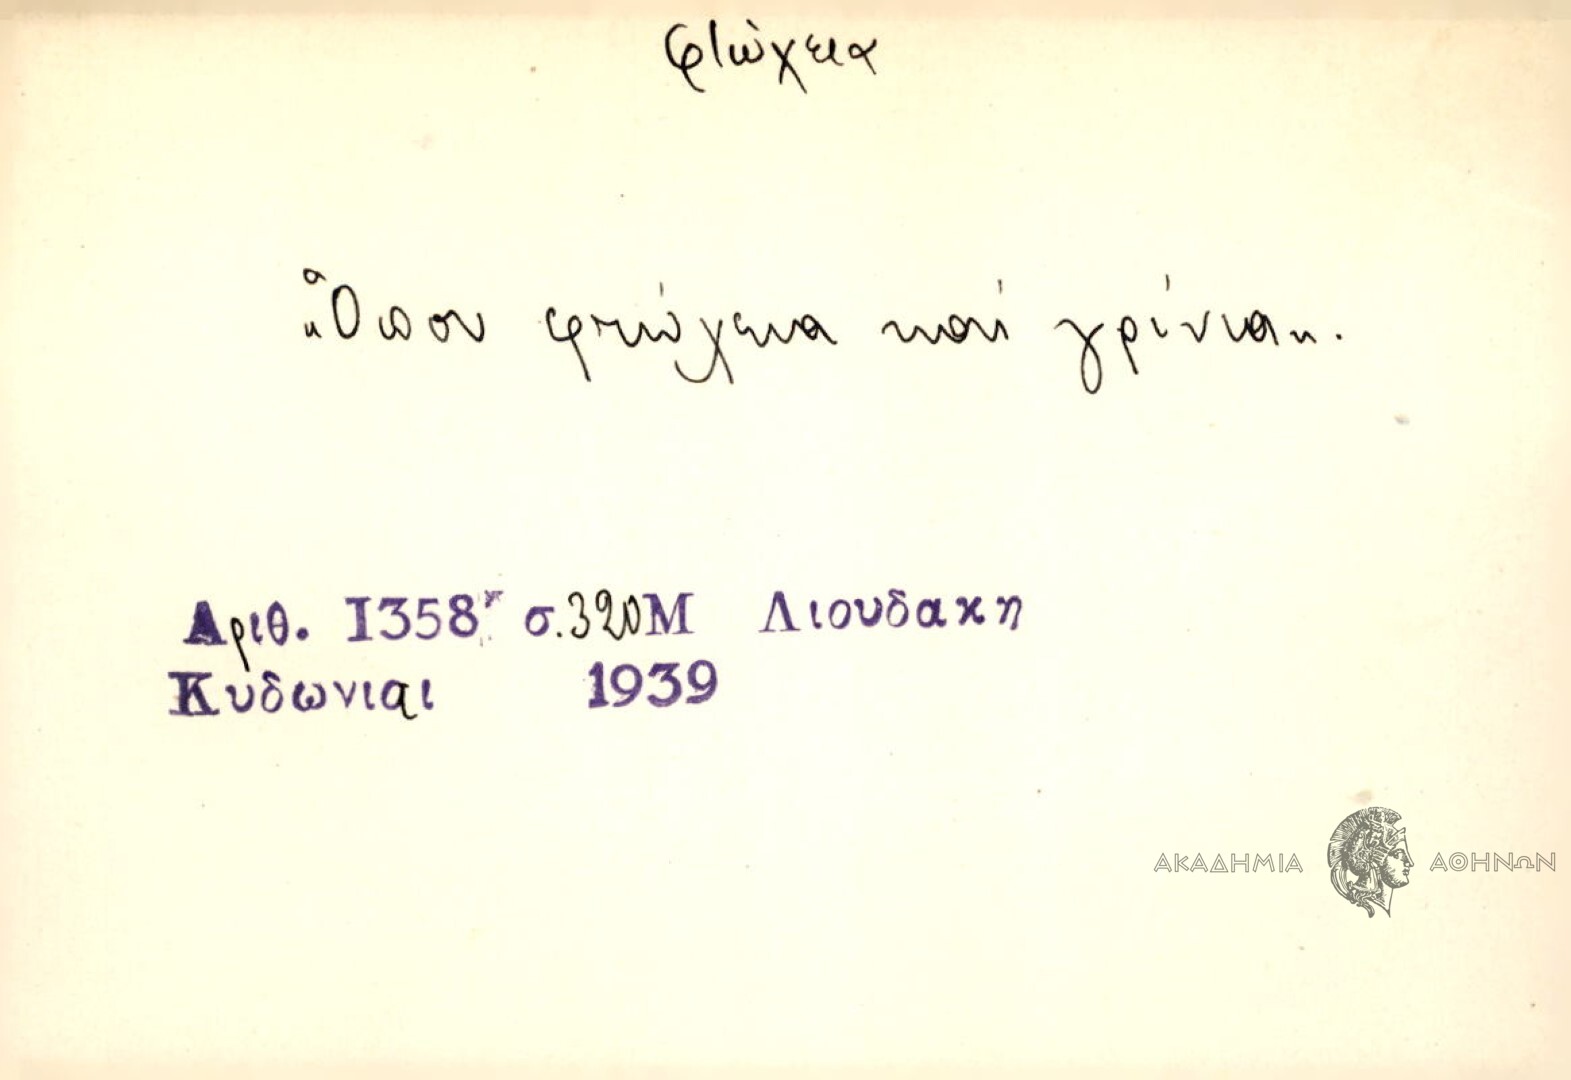 φτώχεια
"Ὅπου φτώχεια καί γρίνια".
Αριθ. 1358 σ.320 Μ Λιουδακη
Κυδωνιαι 1939
ΑΚΑΔΗΜΙΑ ΑΘΗΝΩΝ